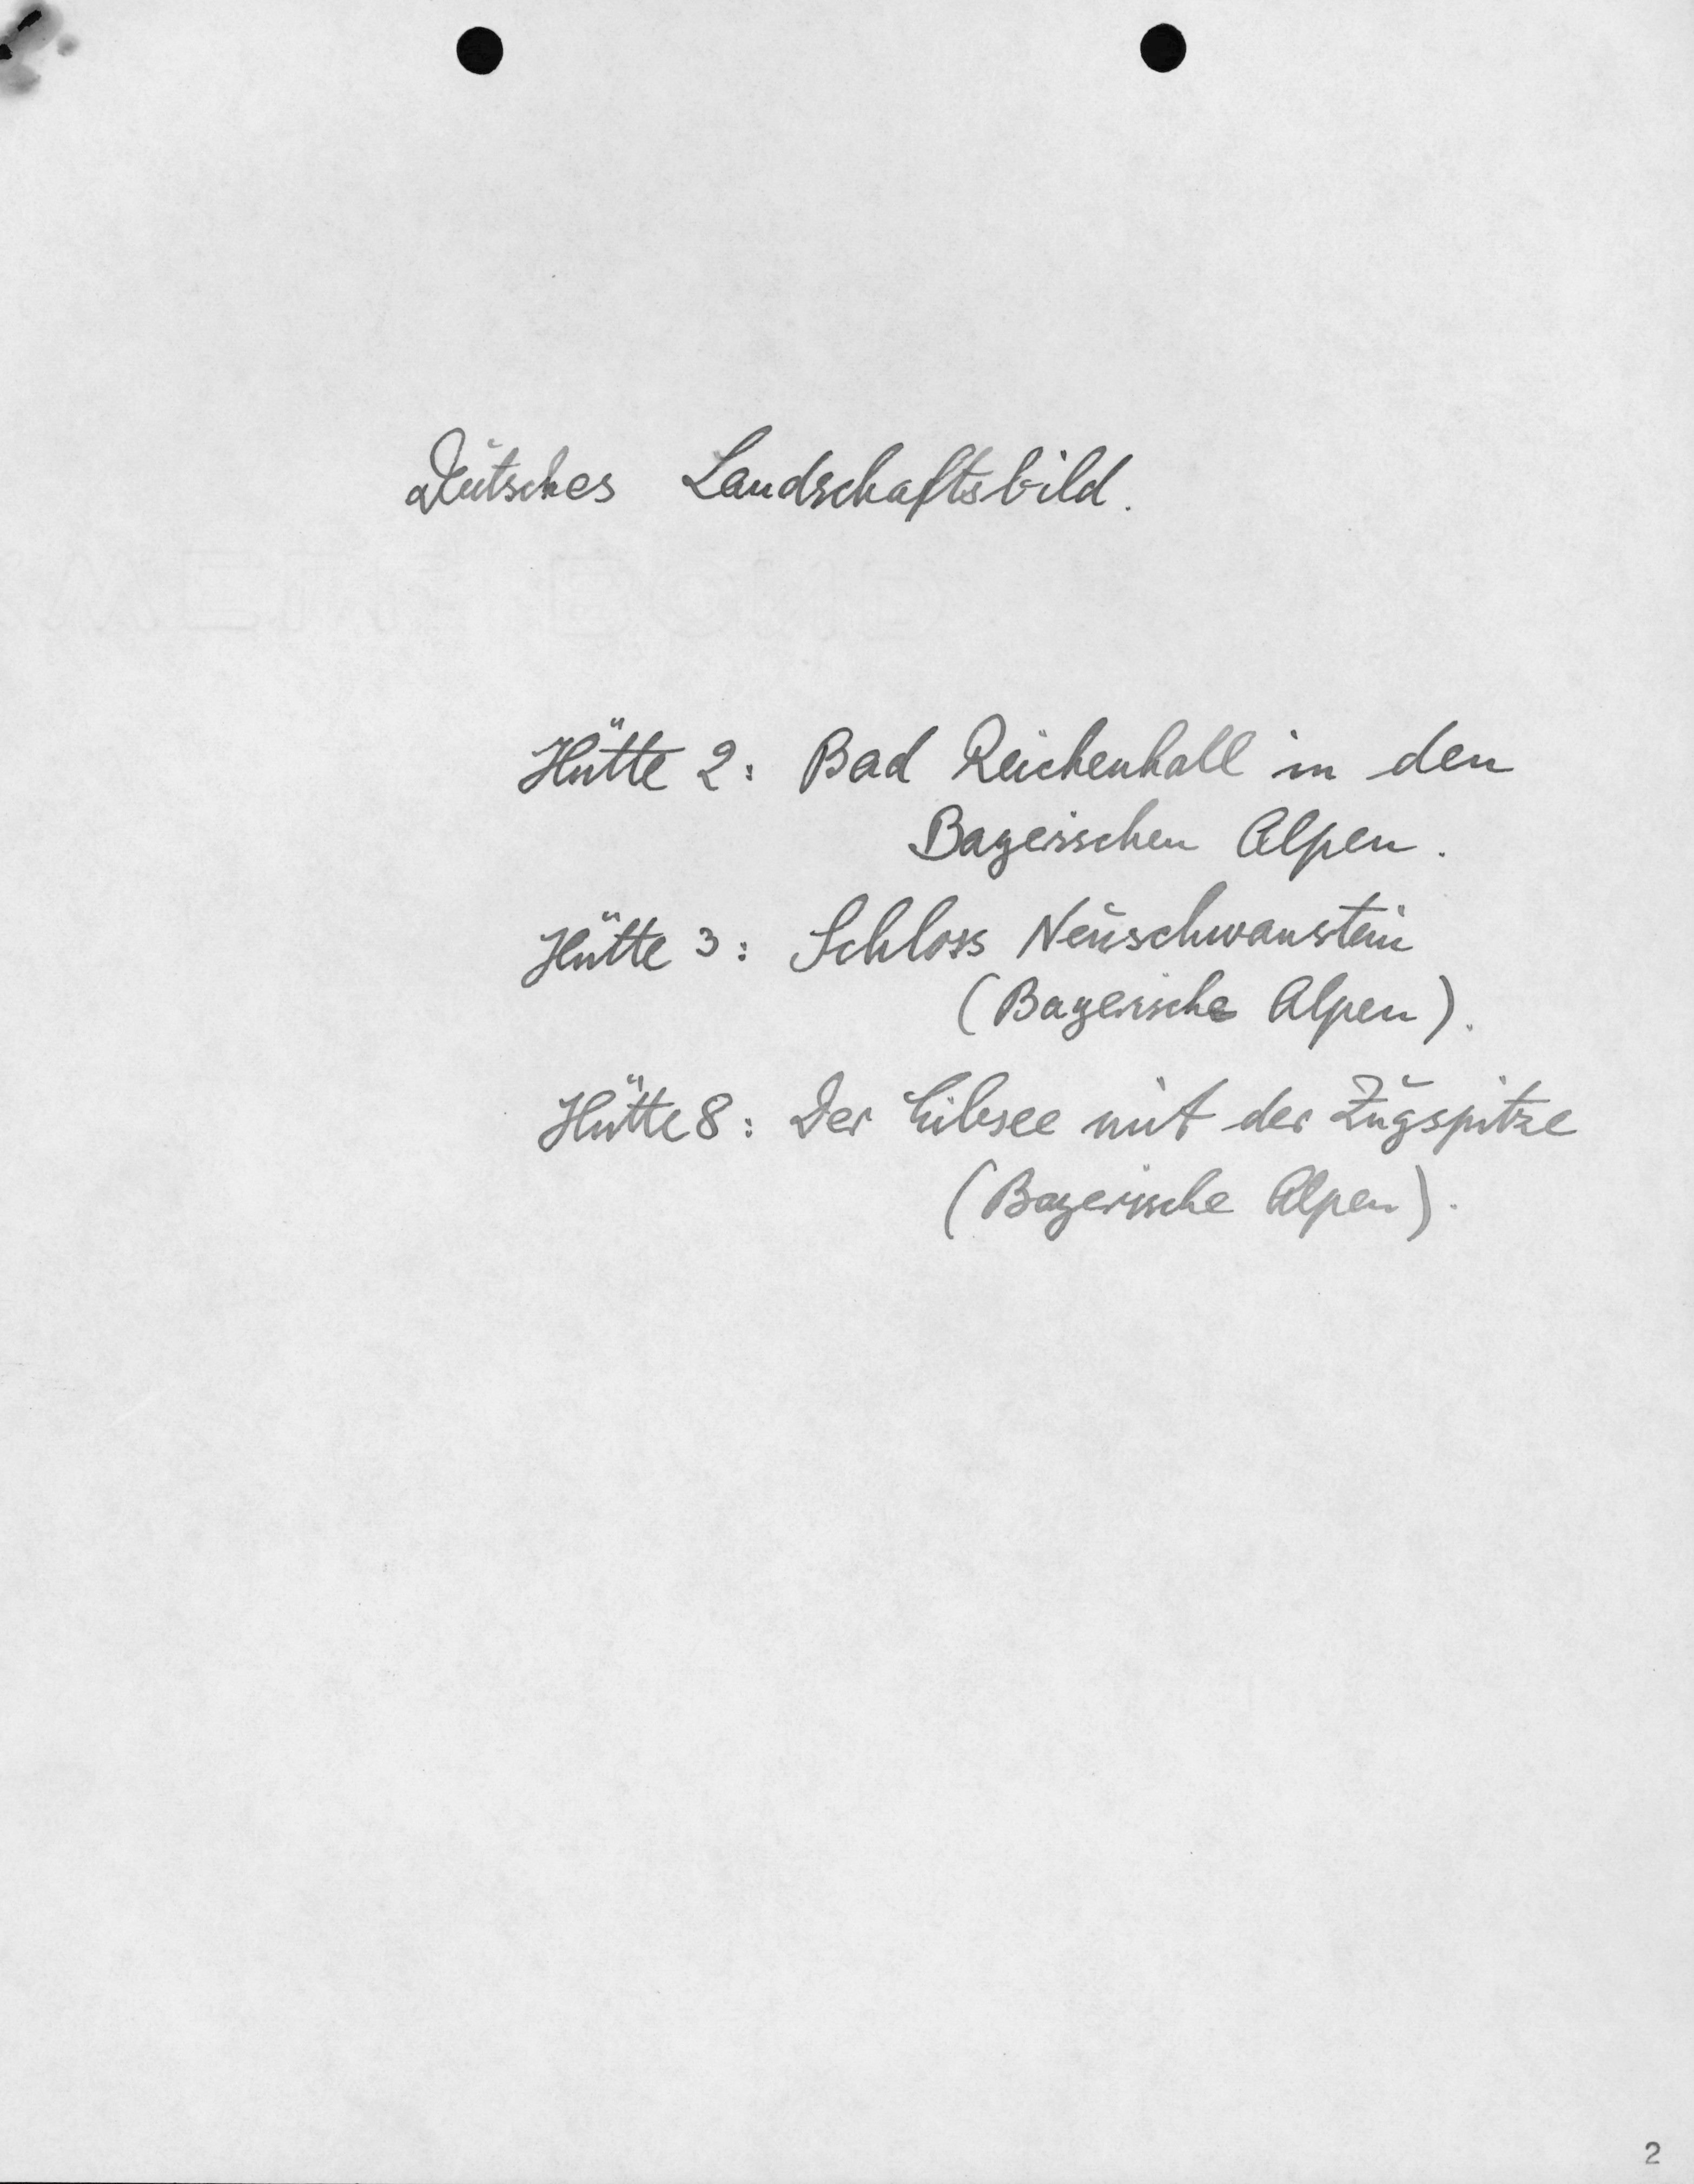 Deutsches Landschaftsbild.
Hütte 2: Bad Reichenhall in den
Bayerischen Alpen.
Hütte 3: Schloss Neuschwanstein
(Bayerische Alpen).
Hütte 8: Der Eibsee mit der Zugspitze
(Bayerische Alpen).
2